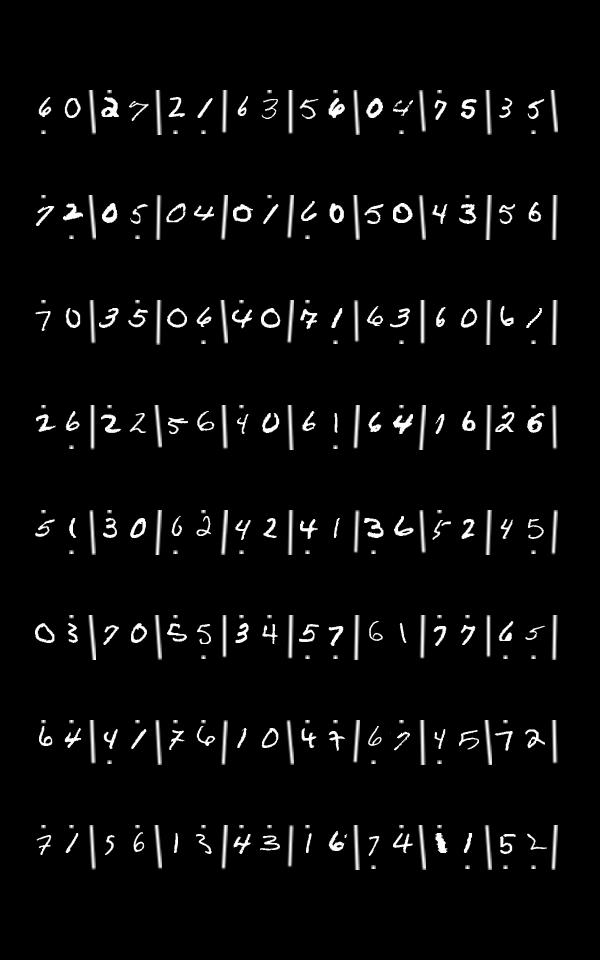 6̣ 0 | 2̇ 7 | 2̣ 1̣ | 6 3̇ | 5 6̇ | 0 4̣ | 7̇ 5 | 3 5̣ |
7̇ 2̣ | 0 5̣ | 0 4 | 0 1̇ | 6̣ 0 | 5 0 | 4 3̇ | 5 6 |
7̇ 0 | 3 5̇ | 0 6̣ | 4̇ 0 | 7̇ 1̣ | 6 3̣ | 6 0 | 6 1̣ |
2̇ 6̣ | 2̇ 2 | 5 6 | 4̇ 0 | 6 1̣ | 6 4̇ | 1 6 | 2̇ 6̇ |
5̇ 1̣ | 3̇ 0 | 6̣ 2̇ | 4̣ 2 | 4̣ 1 | 3̣ 6 | 5̇ 2 | 4 5̣ |
0 3̇ | 7 0 | 5̇ 5̣ | 3̇ 4̇ | 5̣ 7̣ | 6 1 | 7̇ 7̇ | 6̣ 5̣ |
6 4̇ | 4̣ 1̇ | 7̇ 6̇ | 1 0 | 4̇ 7̇ | 6̣ 7̇ | 4̣ 5 | 7̇ 2 |
7̇ 1̇ | 5 6̇ | 1 3̇ | 4̇ 3̇ | 1̇ 6 | 7̣ 4̇ | 1̇ 1̣ | 5̣ 2̣ |